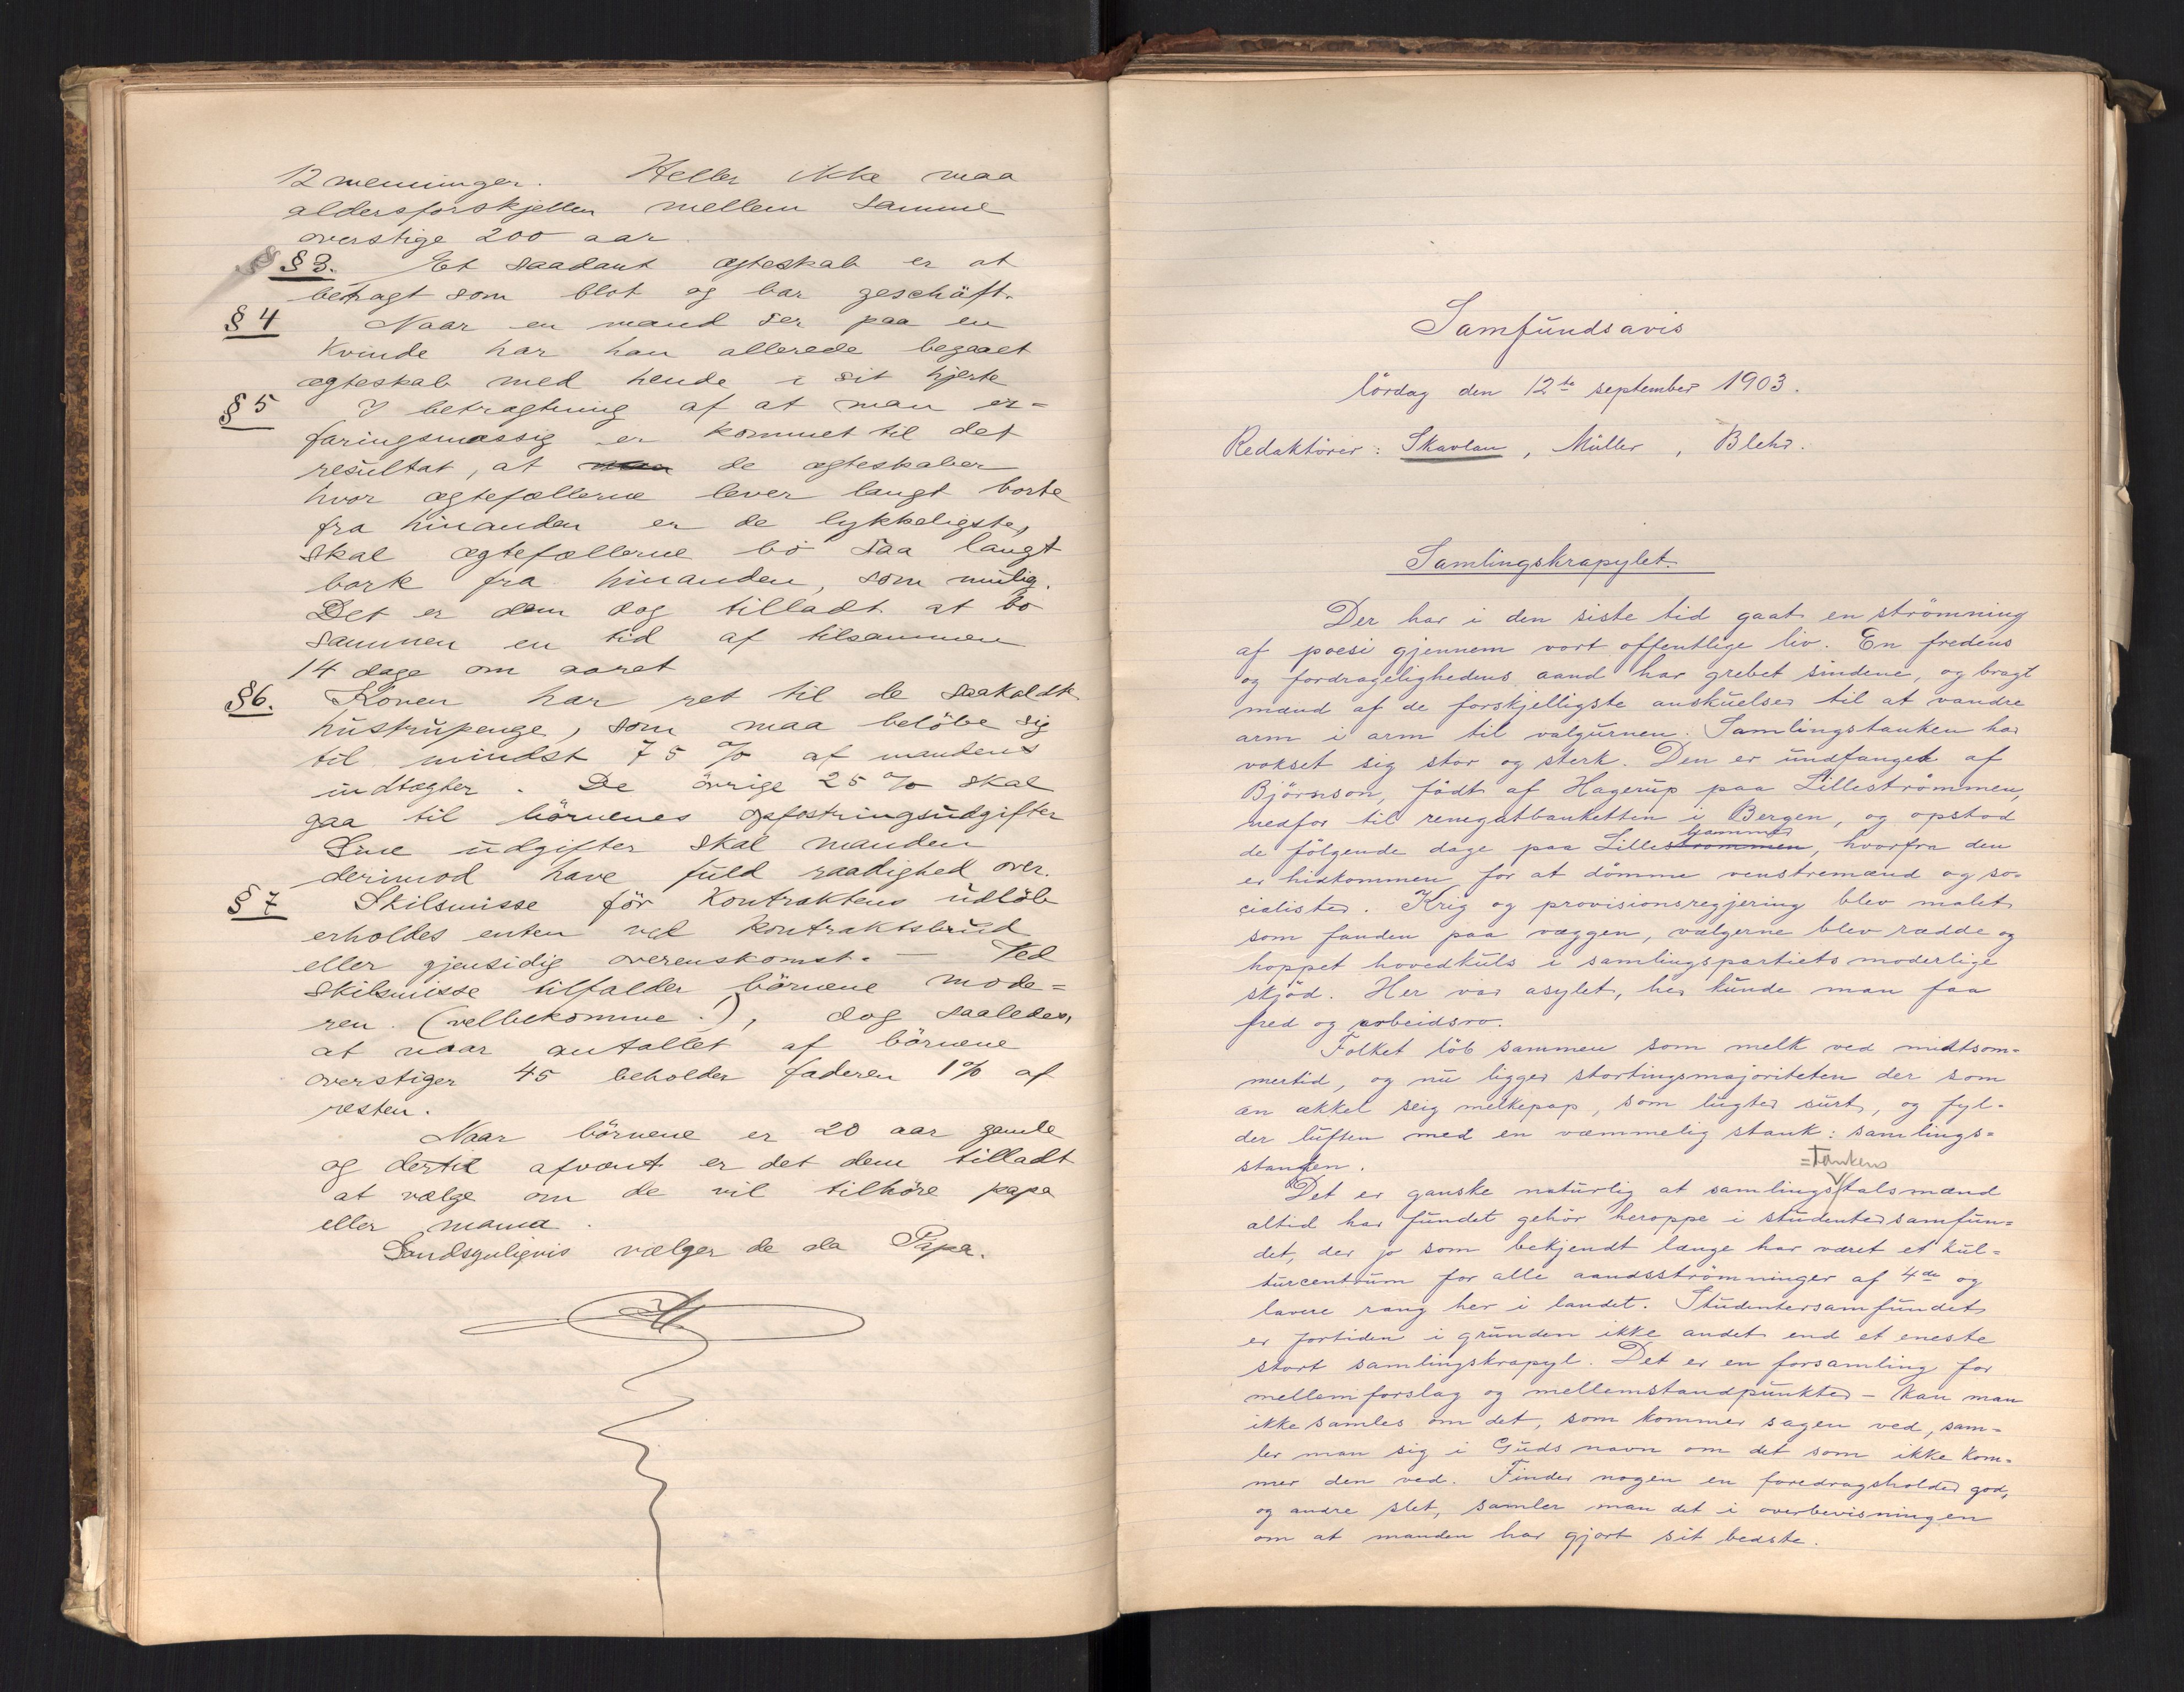 12 menninger. Heller ikke maa
aldersforskjellen mellem samme
overstige 200 aar.
§ 3. Et saadant ægteskab er at
betragt som blot og bar geschäft.
§ 4 Naar en mand ser paa en
kvinde har han allerede begaaet
ægteskab med hende i sit hjerte
§ 5 I betragtning af at man er=
faringsmæssig er kommet til det
resultat, at de ægteskaber
hvor ægtefællerne lever langt borte
fra hinanden er de lykkeligste,
skal ægtefællerne bo saa langt
bort fra hinanden, som mulig.
Det er dem dog tilladt at bo
sammen en tid af tilsammen
14 dage om aaret
§6. Konen har ret til de saakaldte
hustrupenge, som maa belöbe sig
til mindst 75 % af mandens
indtægter. De övrige 25 % skal
gaa til börnenes opfostringsudgifter
Sine udgifter skal manden
derimod have fuld raadighed over.
§ 7 Skilsmisse för kontraktens udlöb
erholdes enten ved kontraktsbrud
eller gjensidig overenskomst. — Ved
skilsmisse tilfalder börnene mode=
ren. (velbekomme.), dog saaledes,
at naar antallet af börnene
overstiger 45 beholder faderen 1% af
resten.
Naar börnene er 20 aar gamle
og dertil afvænt er det dem tilladt
at vælge om de vil tilhöre papa
eller mama.
Sandsynligvis vælger de da Papa.
Samfundsavis
lördag den 12te september 1903.
Redaktörer: Skavlan, Müller, Blehr.
Samlingskrapylet.
Der har i den siste tid gaat en strömning
af poesi gjennem vort offentlige liv. En fredens
og fordragelighedens aand har grebet sindene, og bragt
mænd af de forskjelligste anskuelser til at vandre
arm i arm til valgurnen. Samlingstanken har
vokset sig stor og sterk. Den er undfanget af
Björnson, födt af Hagerup paa Lilleströmmen,
nedfor til renegatbanketten i Bergen, og opstod
hammer
de fölgende dage paa Lilleströmmen, hvorfra den
er hidkommen for at dömme venstremænd og so-
cialister. Krig og provisionsregjering blev malet
som fanden paa væggen, vælgerne blev rædde og
hoppet hovedkuls i samlingspartiets moderlige
skjöd. Her var asylet, her kunde man faa
fred og arbeidsro.
Folket löb sammen som melk ved midtsom-
mertid, og nu ligger stortingsmajoriteten der som
en ækkel seig melkepap, som lugter surt, og fyl-
der luften med en væmmelig stank: samlings=
stanken.
=Tankens
Det er ganske naturlig at samlingstalsmænd
altid har fundet gehör heroppe i studentersamfun=
det, der jo som bekjendt længe har været et kul=
turcentrum for alle aandsströmninger af 4de og
lavere rang her i landet. Studentersamfundet
er fortiden i grunden ikke andet end et eneste
stort samlingskrapyl. Det er en forsamling for
mellemforslag og mellemstandpunkter – kan man
ikke samles om det, som kommer sagen ved, sam=
ler man sig i Guds navn om det som ikke kom-
mer den ved. Finder nogen en foredragsholder god,
og andre slet, samler man det i overbevisningen
om at manden har gjort sit bedste.